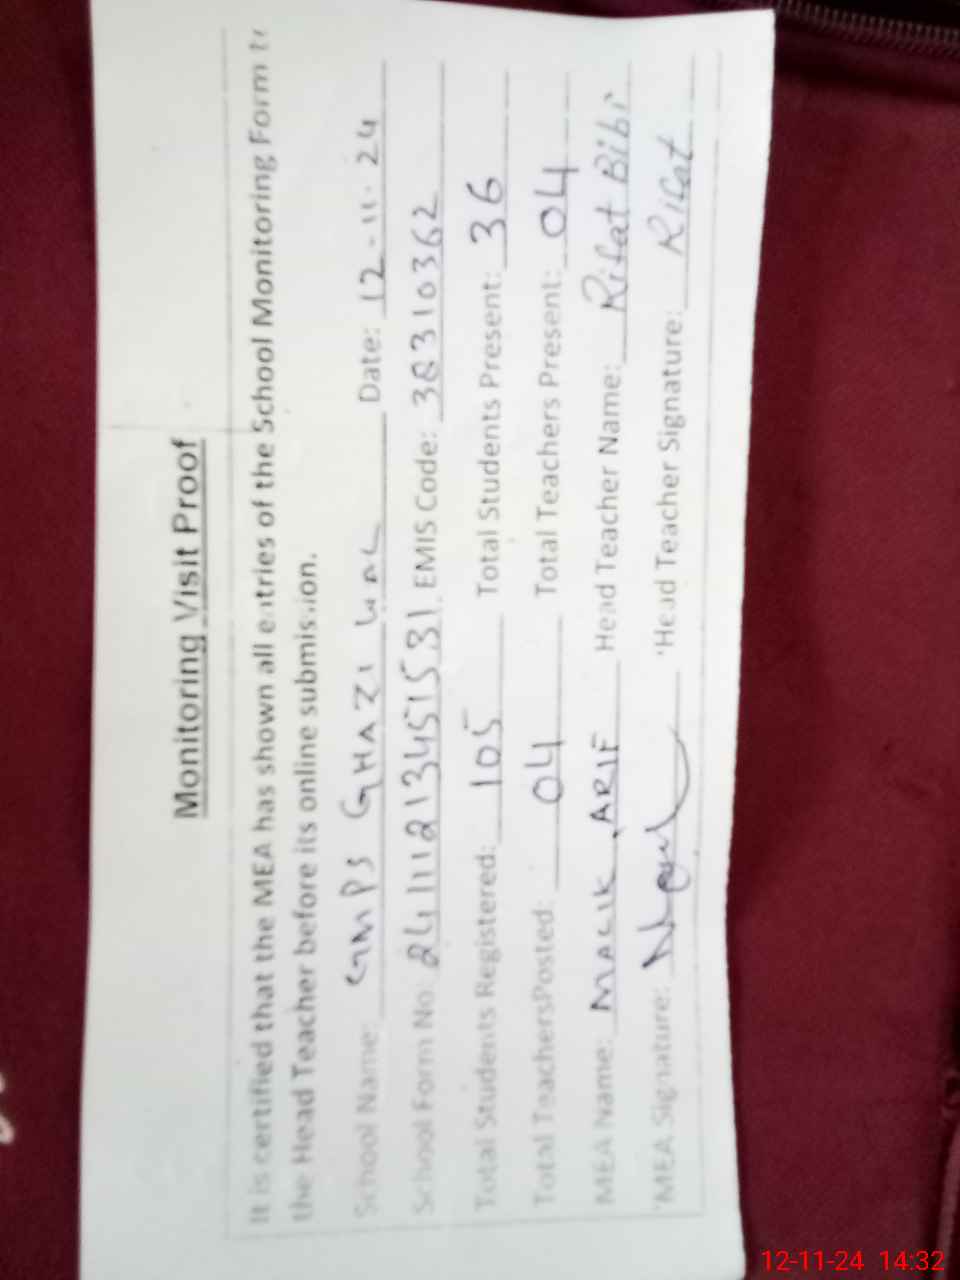 Monitoring Visit Proof
It is certified that the MEA has shown all entries of the School Monitoring Form to
the Head Teacher before its online submission.
School Name: GMPS GHAZI WAL Date: 12-11-24
School Form No: 241112134515 31. EMIS Code: 38310362
Total Students Registered: 105 Total Students Present: 36
Total TeachersPosted: 04 Total Teachers Present: 04
MEA Name: MALIK ARIF Head Teacher Name: Rifat Bibi
'MEA Signature: 'Head Teacher Signature: Rifat
12-11-24 14:32